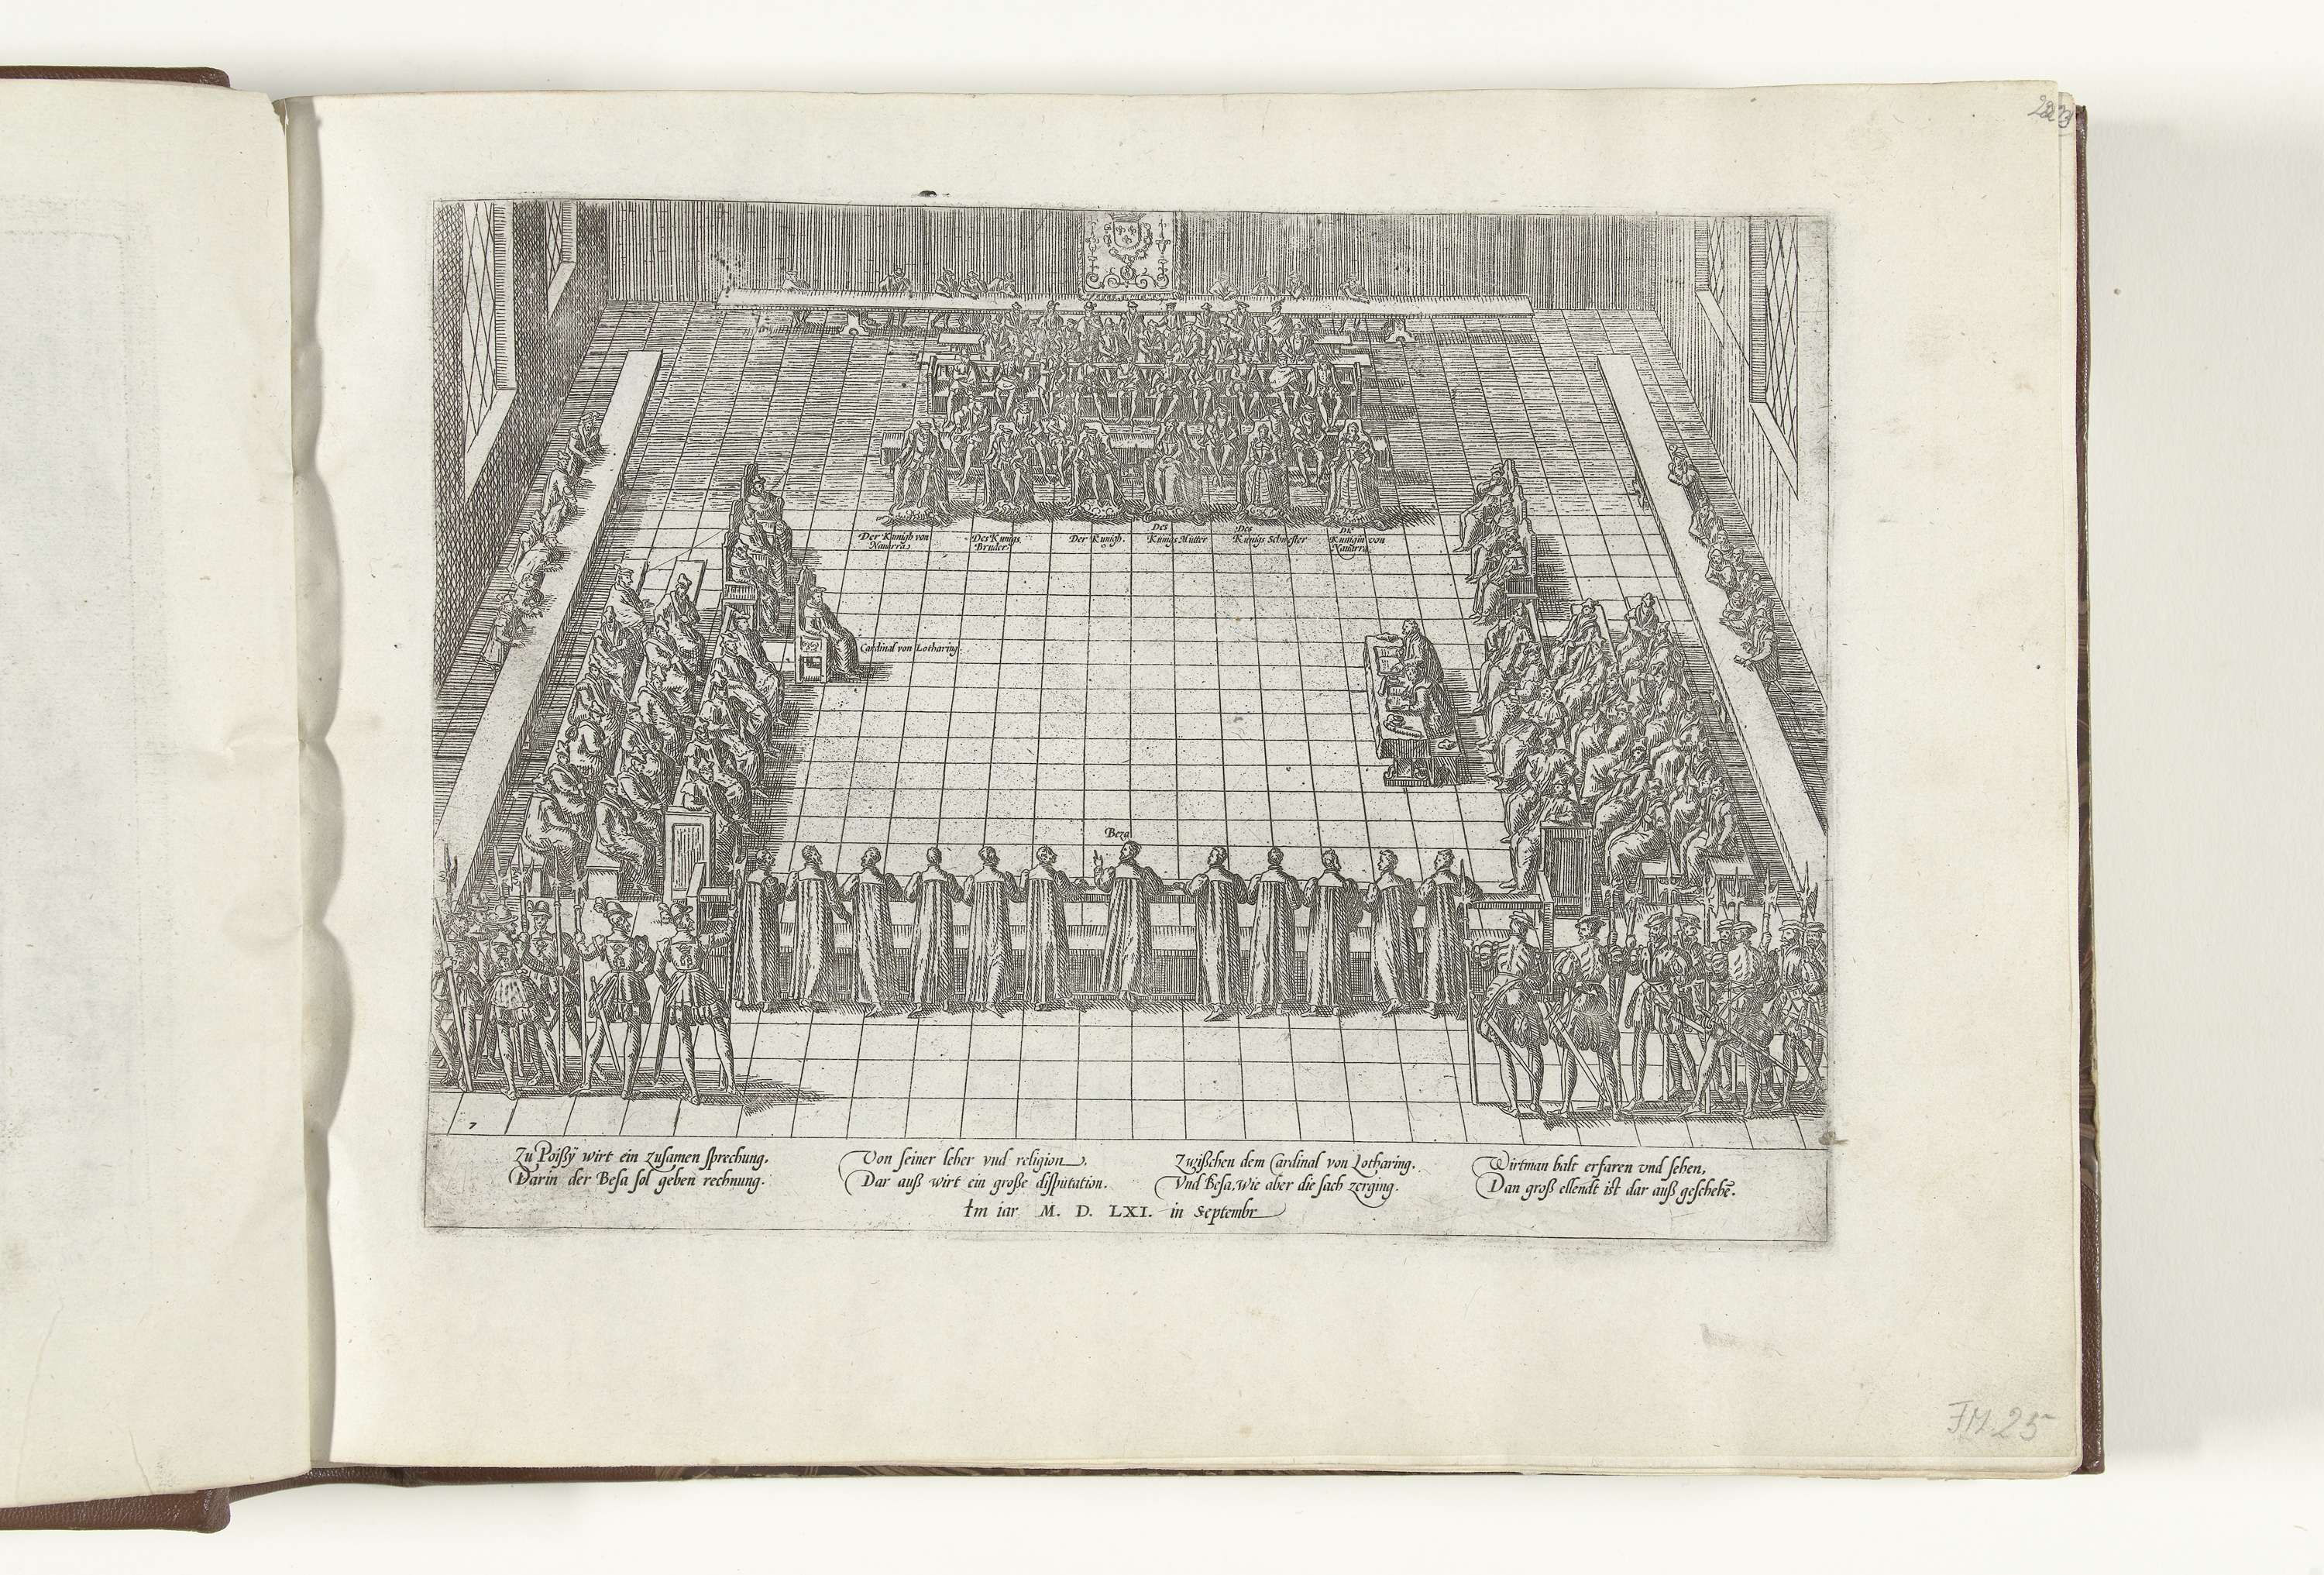 Der Kunigh von
Navarra
Des Kunigs
Bruder
Der Kunigh.
Des
Kunigs Mutter
Des
Kunigs Schwester
Die
Kunigin von
Navarra
Cardinal von Lotharing
Beza
7
Zu Poißÿ wirt ein zusamen sprechung,
Darin der Besa sol geben rechnung.
Von seiner leher vnd religion,
Dar auß wirt ein große disputation.
Zwißchen dem Cardinal von Lotharing.
Vnd Besa, wie aber die sach zerging.
Wirtman balt erfaren vnd sehen,
Dan groß ellendt ist dar auß geschehē.
Im iar M. D. LXI. in Septembr
FM. 25